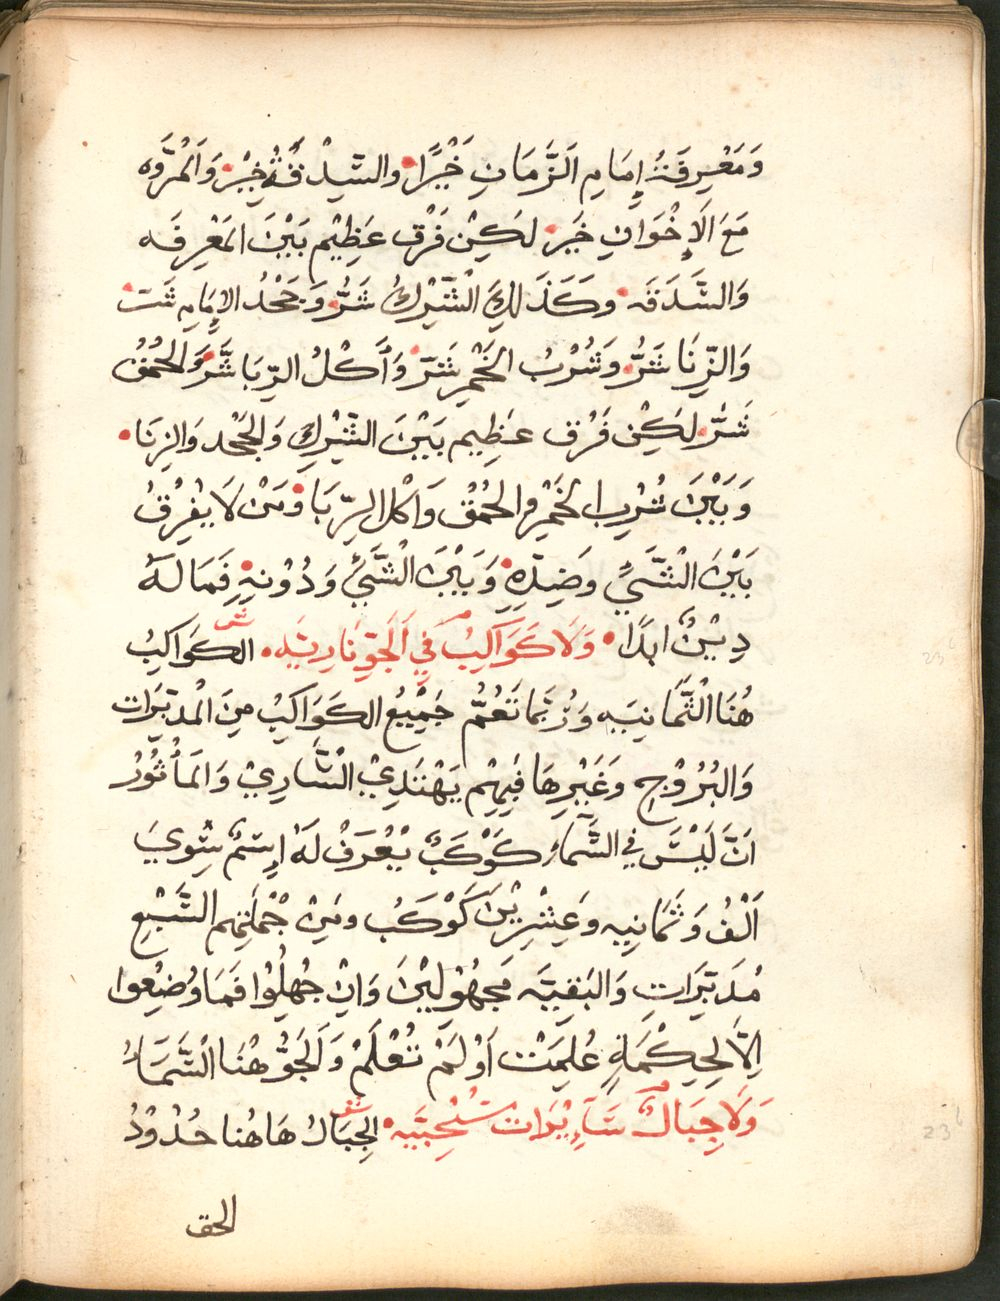 وَمَعْرِفَةُ إِمَامِ الَزَّمَانِ خَيْرًا والسِّدْقُ خِيْرٌ وَالَمُرَّوه
مَعَ الَإِخْوَانِ خَير لَكِنْ فَرْق عَظِيْم بَيْنَ المَعْرِفَه
وَالسَّدَقَه وَكَذَلِكَ الْشِّرْكُ شَرٌّ وَجَحْدُ الإِمَامِ شَت
وَالزِّنَا شَرٌّ وَشُرْبُ الخَمْرِ شَرّ وَأَكْلُ الرِّبَا شَّرّ وَالحُمْقُ
شَرٌّ لَكِنْ فَرْق عَظِيم بَيْنَ الشِّرْكِ وَالجَحْد وَالزِنَا
وَبَيْنَ شُرْبِ الخَمْرِ والحُمْقِ وَاكْل الرِّبَا وَمَنْ لَا يفْرِقُ
بَيْنَ الشَّيْءِ وضِدِّهِ وَبَيْنَ الْشَّيْءِ وَدُوْنِهِ فَمَا لَهُ
دِيْنٌ ابدًا وَلَا كَوَاكِبٌ فِي اَلجَوِّ نَارِيَّه ش الكَوَاكِبُ
هُنَا الْثَّمَانِيَه وَرُبَّمَا تَعُمُّ جَمِيْعُ الكَوَاكِبْ مِنَ الْمُدبِّرَات
وَالبُرُوْجِ وَغَيْرِهَا فَبِهِمْ يَهْتَدِيْ الْسَّارِيْ وَالمَأْثُوْرُ
انَّ لَيْسَ فِي السَّمَآءِ كَوْكَبٌ يُعْرَفُ لَهُ إِسْمٌ سِوَيَ
اَلْفُ وَثَمَانِيه وَعِشْرِيْنَ كَوْكَبُ ومِنْ جُمْلَتِهِم السَّبْعِ
مُدَبِّرَاتِ وَالبَقِيَّه مَجهُوْلِيْنَ وَانْ جُهِلُوْا فَمَا وُضِعُوا
اِلَّا لِحِكْمَةٍ عُلِمَتْ اَوْ لَمْ تُعْلَمْ وَالَجَوُّ هُنَا الْسَّمَآءُ
وَلَا جِبَالٌ سَآئِرَات سُحْبِيَّه ش الجِبَالُ هَاهُنا حُدُوْدُ
الحق